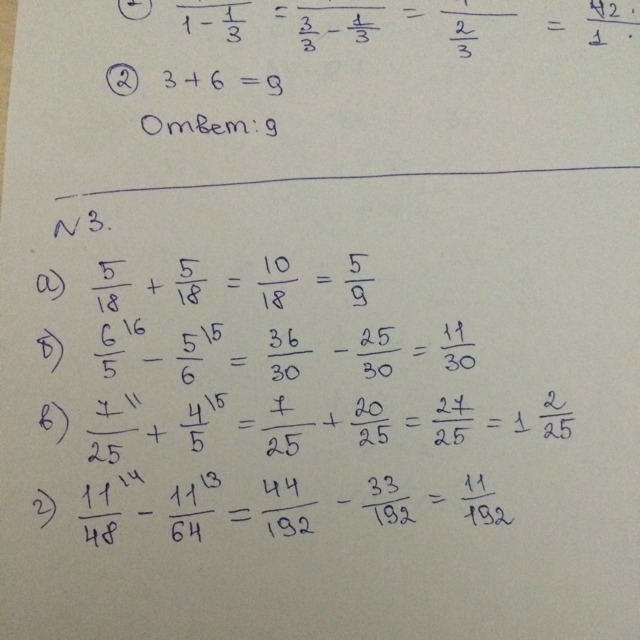 1 - 1/3 = 3/3 - 1/3 = 2/3 = 1
② 3 + 6 = 9
Ответ: 9
N 3.
а) 5/18 + 5/18 = 10/18 = 5/9
б) 6/5 \6 - 5/6 \5 = 36/30 - 25/30 = 11/30
в) 7/25 \1 + 4/5 \5 = 7/25 + 20/25 = 27/25 = 1 2/25
г) 11/48 \4 - 11/64 \3 = 44/192 - 33/192 = 11/192